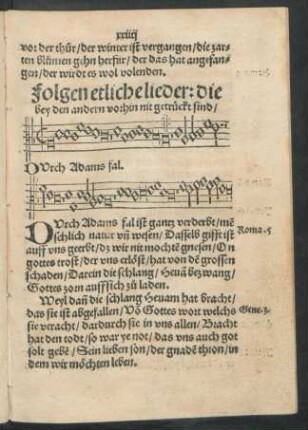 xxiiij
vor der thür/der winter ist vergangen/die zar-
ten blůmen gehn herfür/der das hat angefan-
gen/der wirdt es wol volenden.
Folgen etliche lieder: die
bey den andern vorhin nit getruckt sind/
DUrch Adams fal.
DUrch Adams fal ist gantz verderbt/mē
schlich natur vñ wesen/Dasselb gifft ist
auff vns geerbt/dz wir nit mochtē gnesen/On
gottes trost/der vns erlößt/hat von dē grossen
schaden/Darein die schlang/Heuā bezwang/
Gottes zorn auff sich zů laden.
Roma.5
Weyl dañ die schlang Heuam hat bracht/
das sie ist abgefallen/Vō Gottes wort welchs
sie veracht/dardurch sie in vns allen/Bracht
hat den todt/so war ye not/das vns auch got
solt gebē/Sein lieben son/der gnadē thron/in
dem wir möchten leben.
Gene.3.